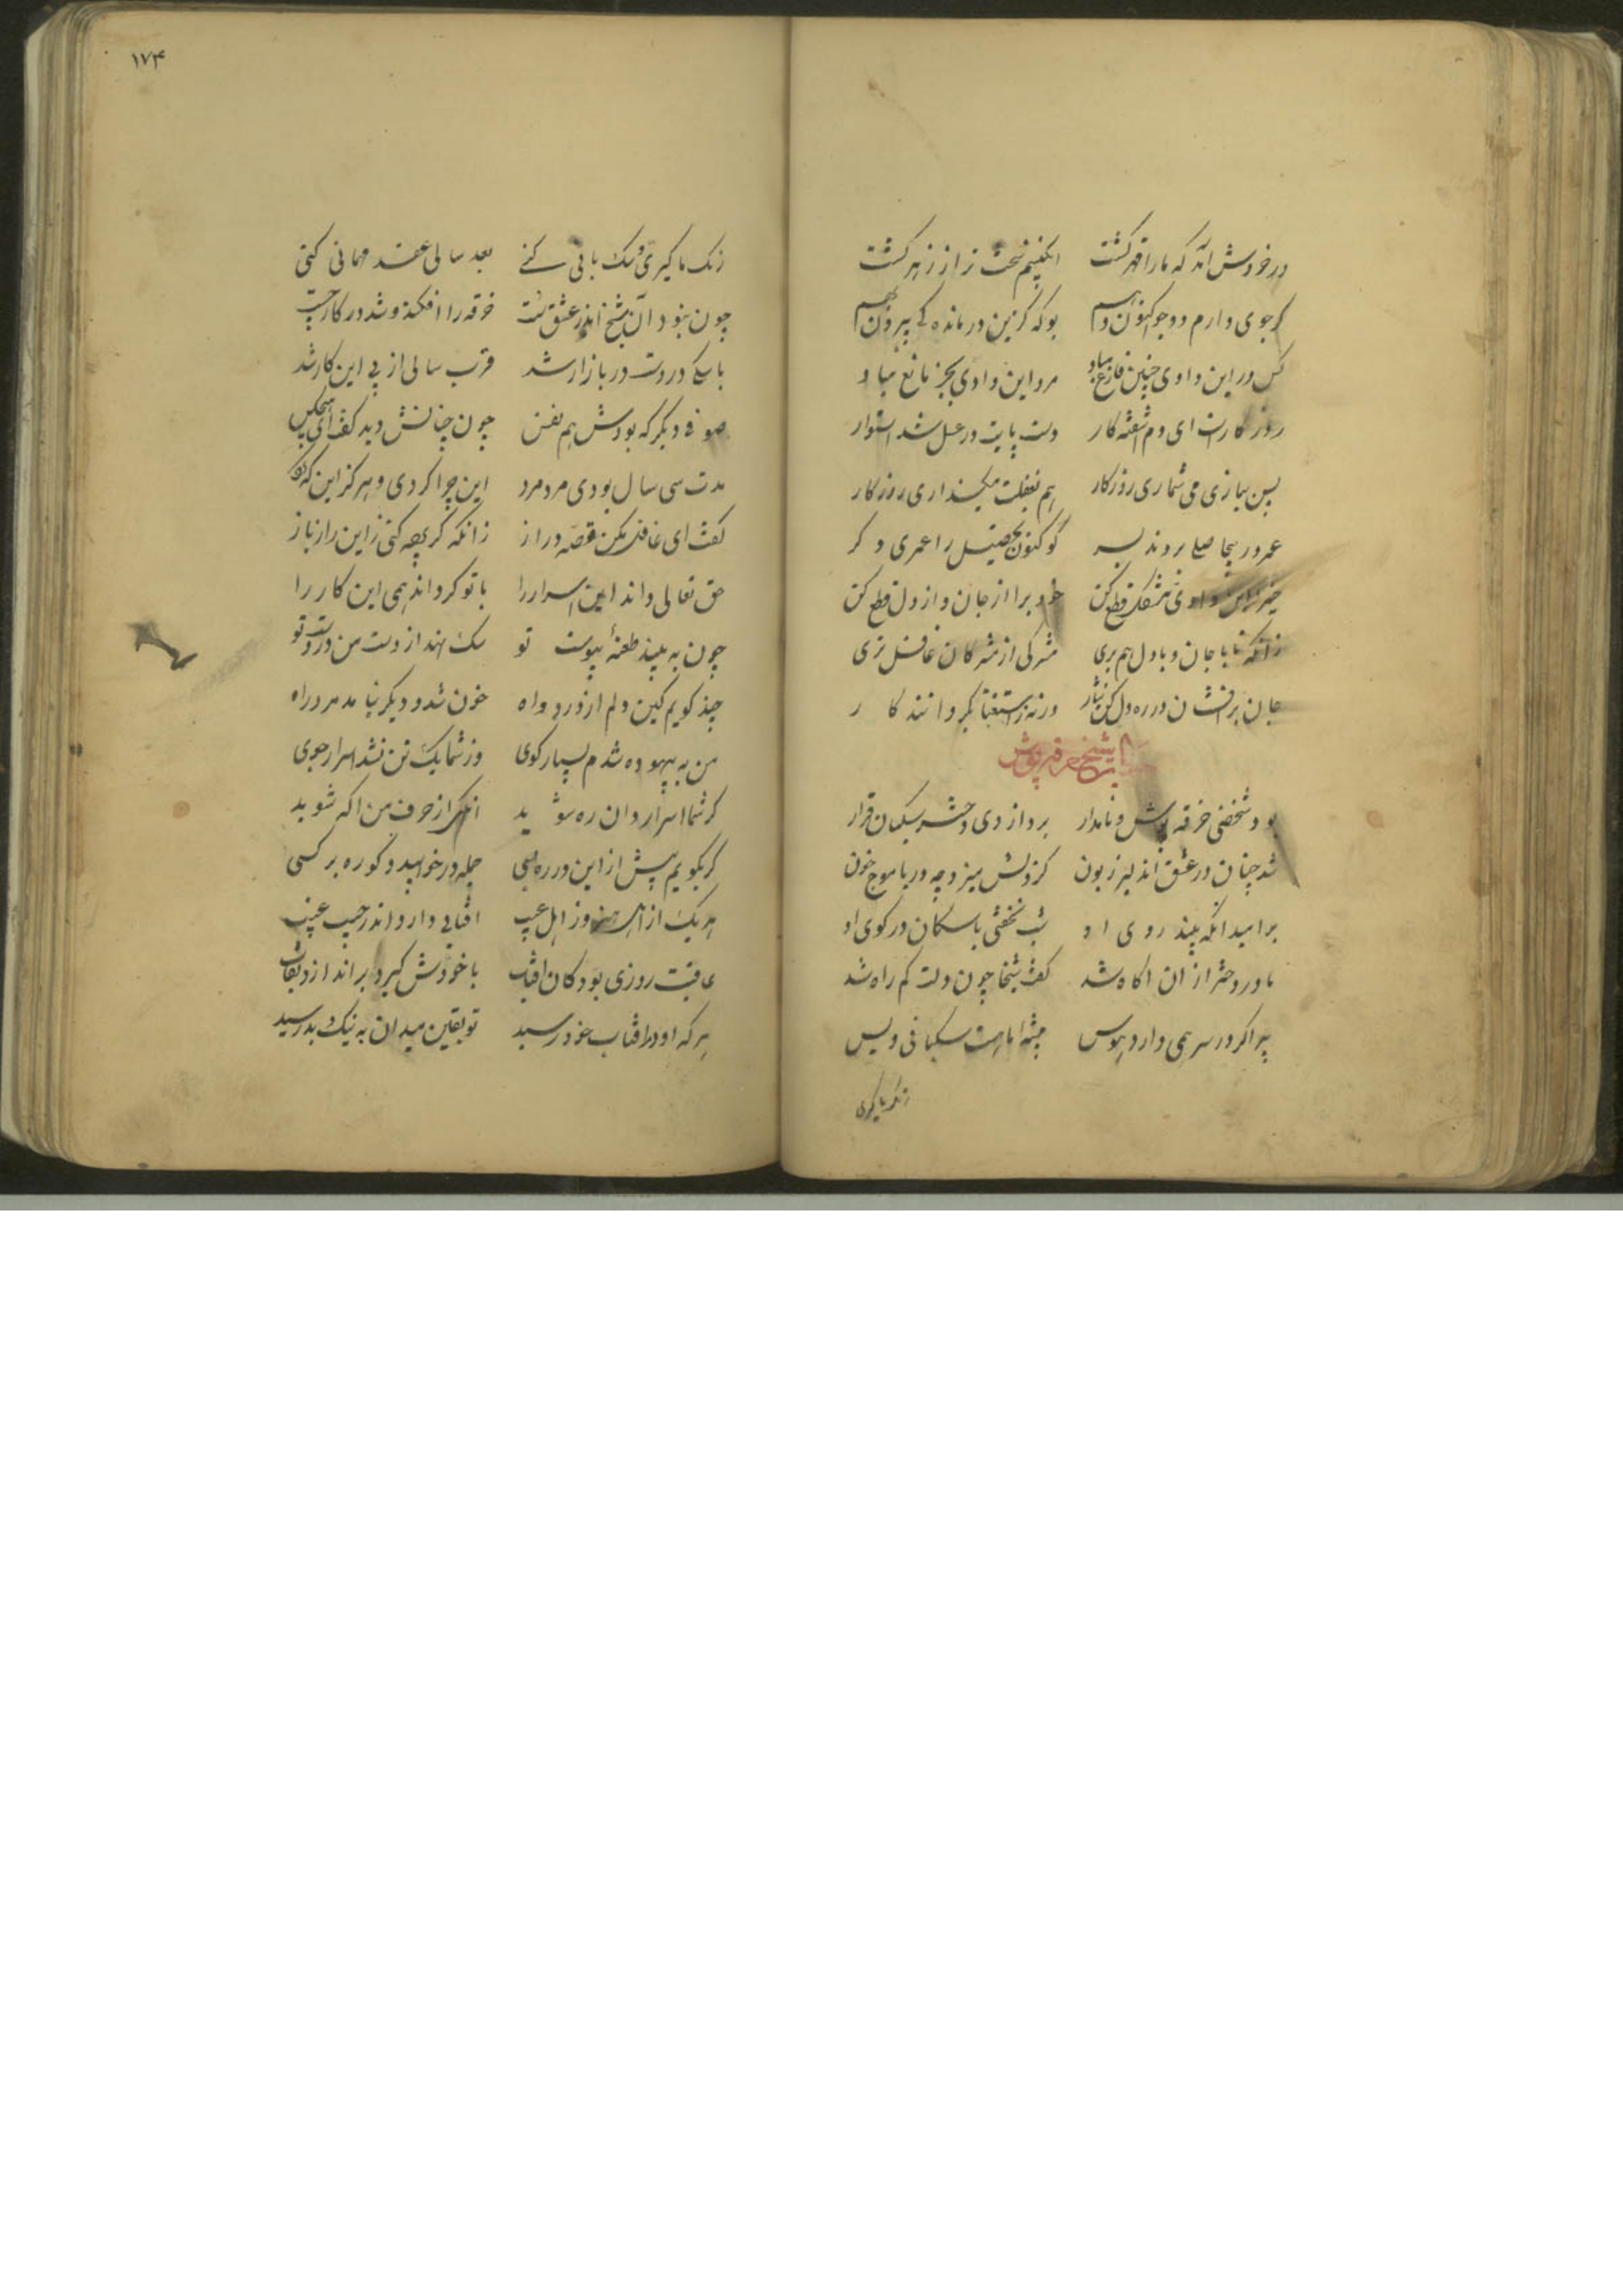 در خروش آمد که ما را قهر کشت انکبینم سخت تر از زهر کشت
کر جوی دارم دو جو اکنون دهم بو که کر زین درمانده کی بیرون جهم
کس در این وادی چنین فارغ مباد مرد این وادی بجز بالغ مباد
روزکاریست ای دم آشفته کار دست پایت در عسل شد استوار
پس ببازی می شماری روزکار هم بغفلت میکذاری روزکار
عمر در بیحاصلی بردند بسر کو کنون تحصیل را عمری دکر
خیز زاین وادی مشکل قطع کن خود برا از جان و از دل قطع کن
زانکه تا با جان و با دل هم بری مشرکی از مشرکان غافل تری
جان برافشان در ره و دل کن نثار ورنه ز استغنا بکردانند کار
شیخ خرقه پوش
بود شخصی خرقه پوش و نامدار برد از وی دختر سکبان قرار
شد چنان در عشق آن دلبر زبون کز دلش میزد چه دریا موج خون
بر امید انکه بیند روی او شب بخفتی با سکان در کوی او
مادر دختر از ان اکاه شد کفت شیخا چون دلت کم راه شد
پیر اکر در سر همی دارد هوس پیشه ما هست سکبانی و بس
رنک ما کیری
رنک ما کیری و سک بانی کنی بعد سالی عقد مهمانی کنی
چون نبود آن شیخ اندر عشق سست خرقه را افکند و شد در کار چست
با سکی در دست در بازار شد قرب سالی از پی این کار شد
صوفی دیکر که بودش هم نفس چون چنانش دید کفت ای هیچکس
مدت سی سال بودی مرد مرد این چرا کردی و هرکز این که کرد
کفت ای غافل مکن قصه دراز زانکه کر پرده کنی زاین راز باز
حق تعالی داند این اسرار را با تو کرداند همی این کار را
چون به بیند طعنه پیوست تو سک نهد از دست من در دست تو
چند کویم کین دلم از درد راه خون شد و دیکر نیامد مرد راه
من به بیهوده شدم بسیار کوی وز شما یک تن نشد اسرار جوی
کر شما اسرار دان ره شوید انکهی از حرف من اکه شوید
کر بکویم بیش از این در ره بسی جمله در خوابید و کو رهبر کسی
هر یک از اهل هنر وز اهل عیب افتابی دارد اندر جیب غیب
عاقبت روزی بود کان افتاب با خودش کیرد براندازد نقاب
هر که او در افتاب خود رسید تو یقین میدان به نیک و بد رسید
۱۷۴